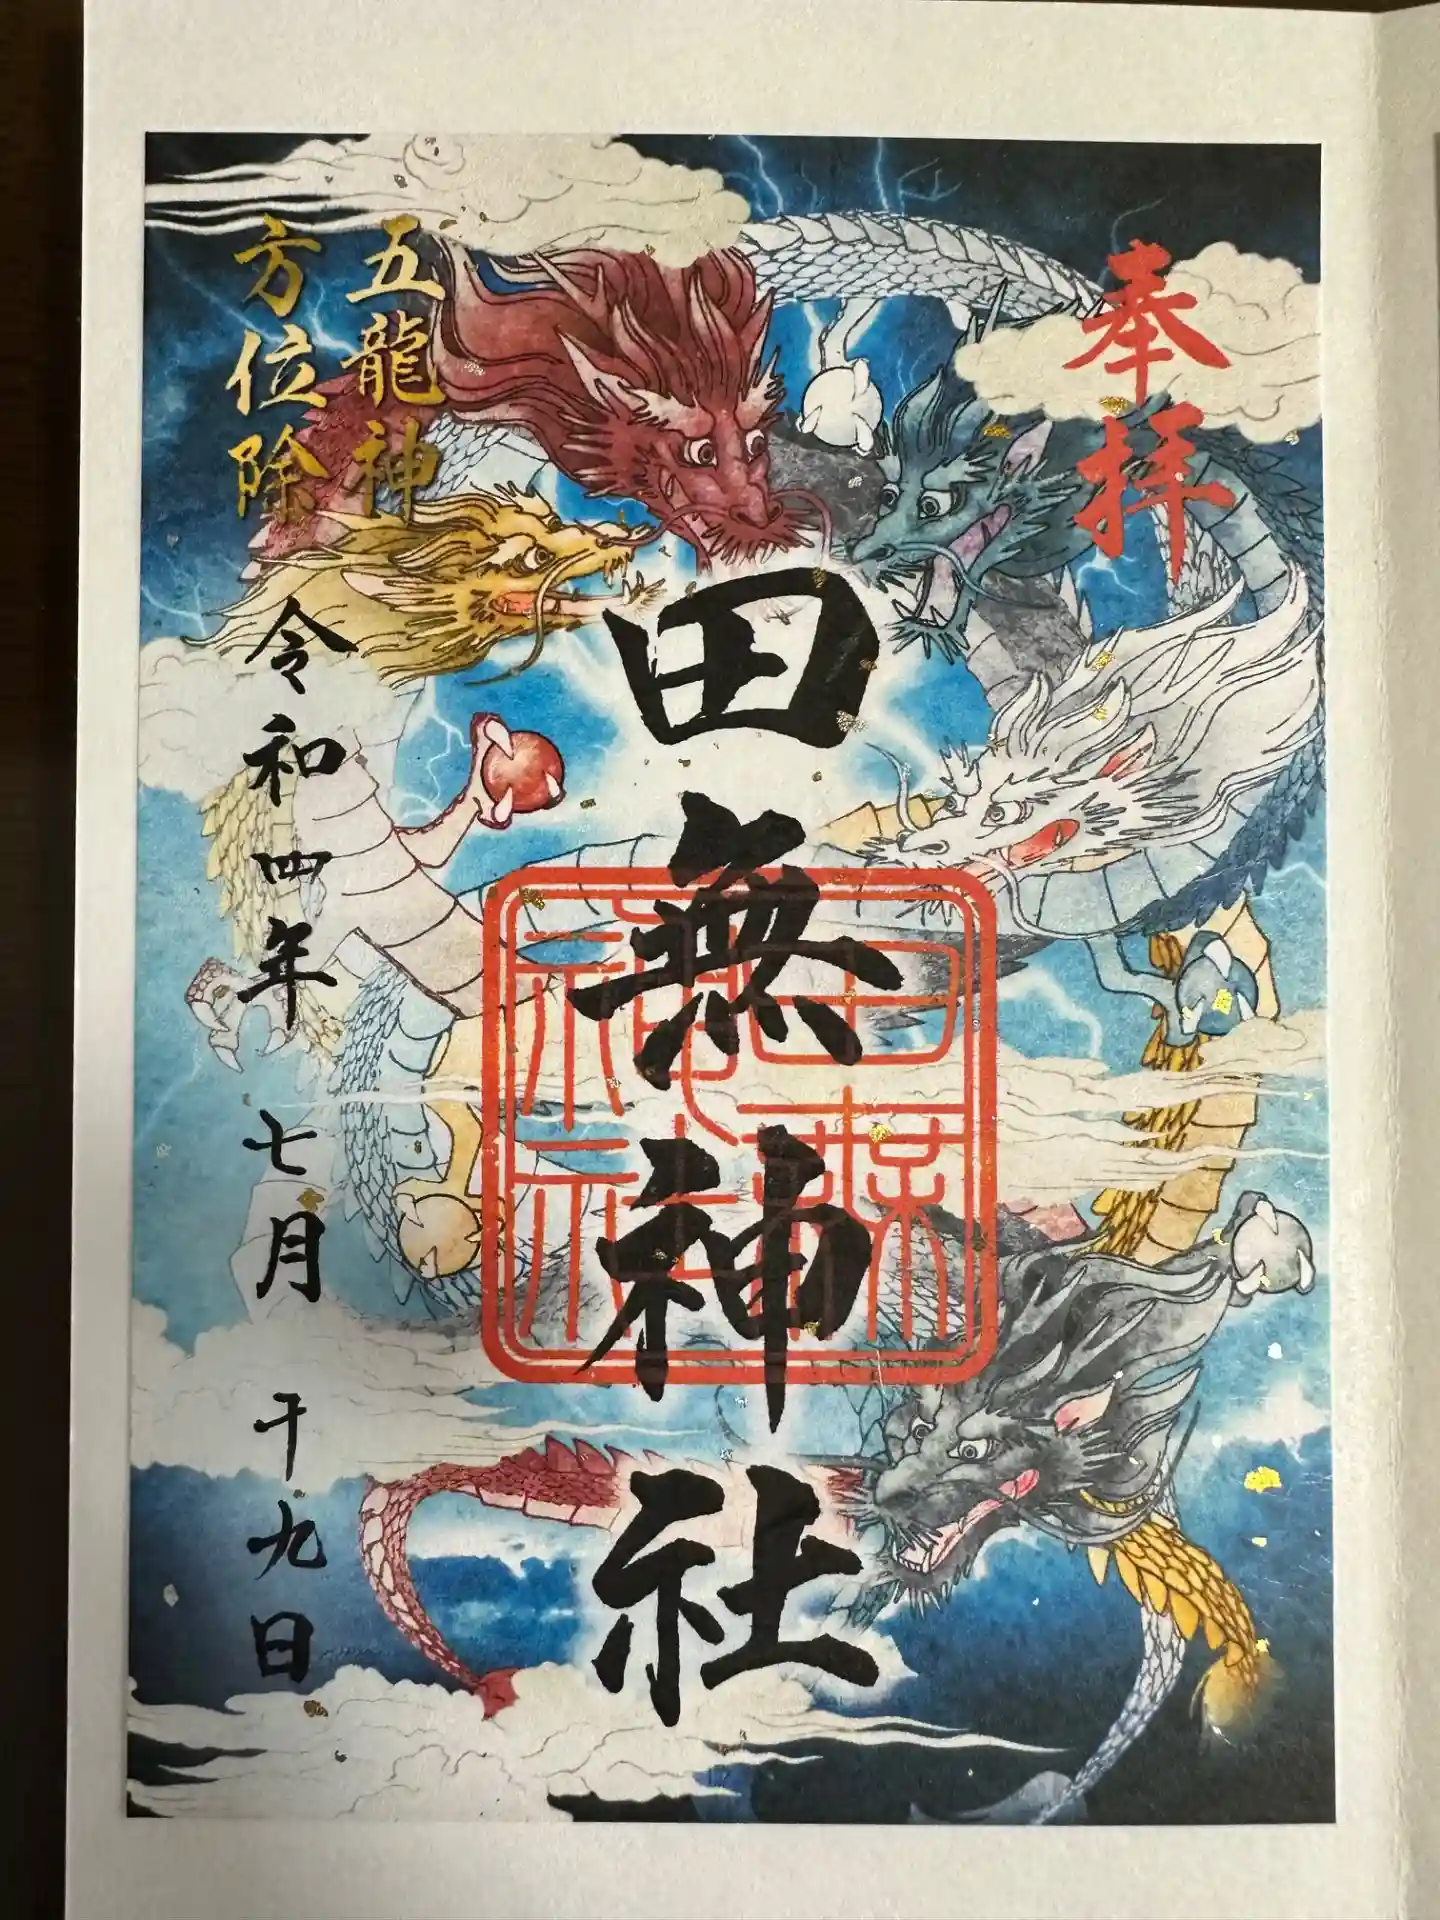 奉拝
田無神社
五龍神
方位除
令和四年 七月 十九日